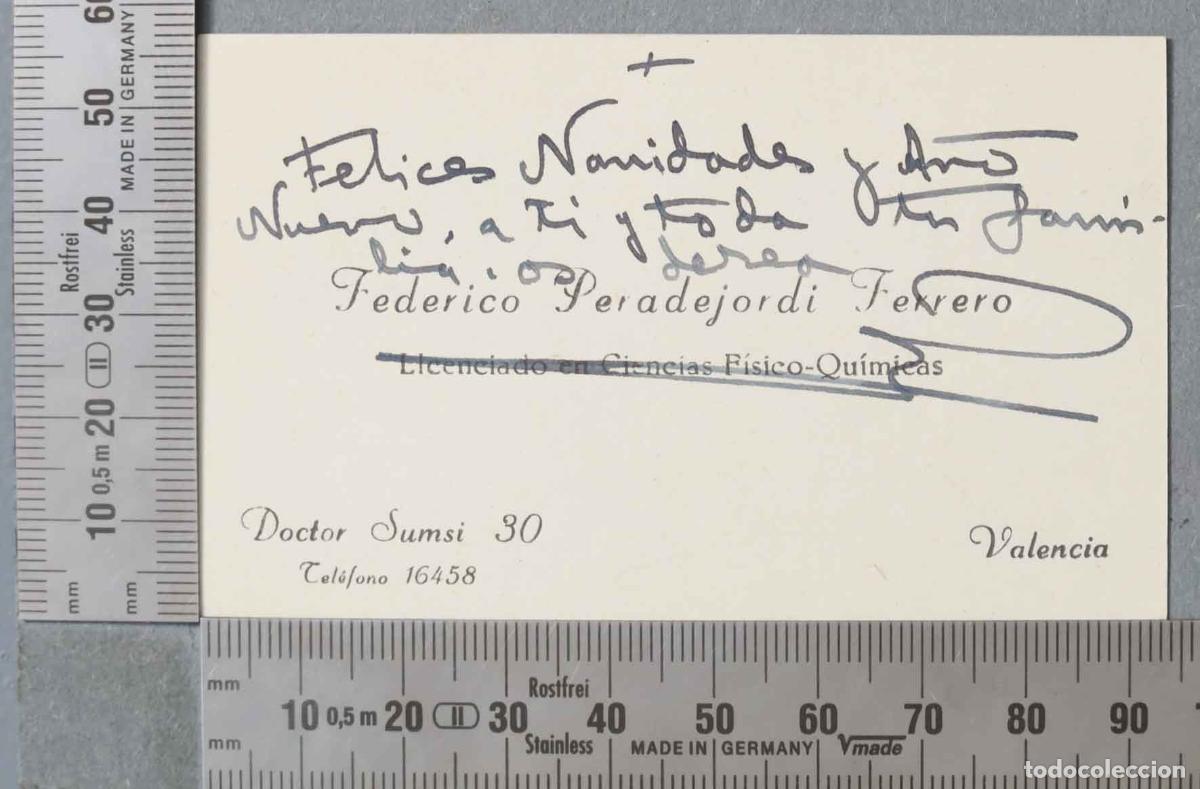 +
Felices Navidades y Año
Nuevo, a ti y toda tu fami-
lia, os desea
Federico Peradejordi Ferrero
Licenciado en Ciencias Físico-Químicas
Doctor Sumsi 30
Teléfono 16458
Valencia
60
50
40
30
20
10 0,5 m
Rostfrei
Stainless
MADE IN GERMANY
mm
mm
mm
Rostfrei
10 0,5 m 20 30 40 50 60 70 80 90
mm
Stainless
MADE IN GERMANY
Vmade
todocoleccion